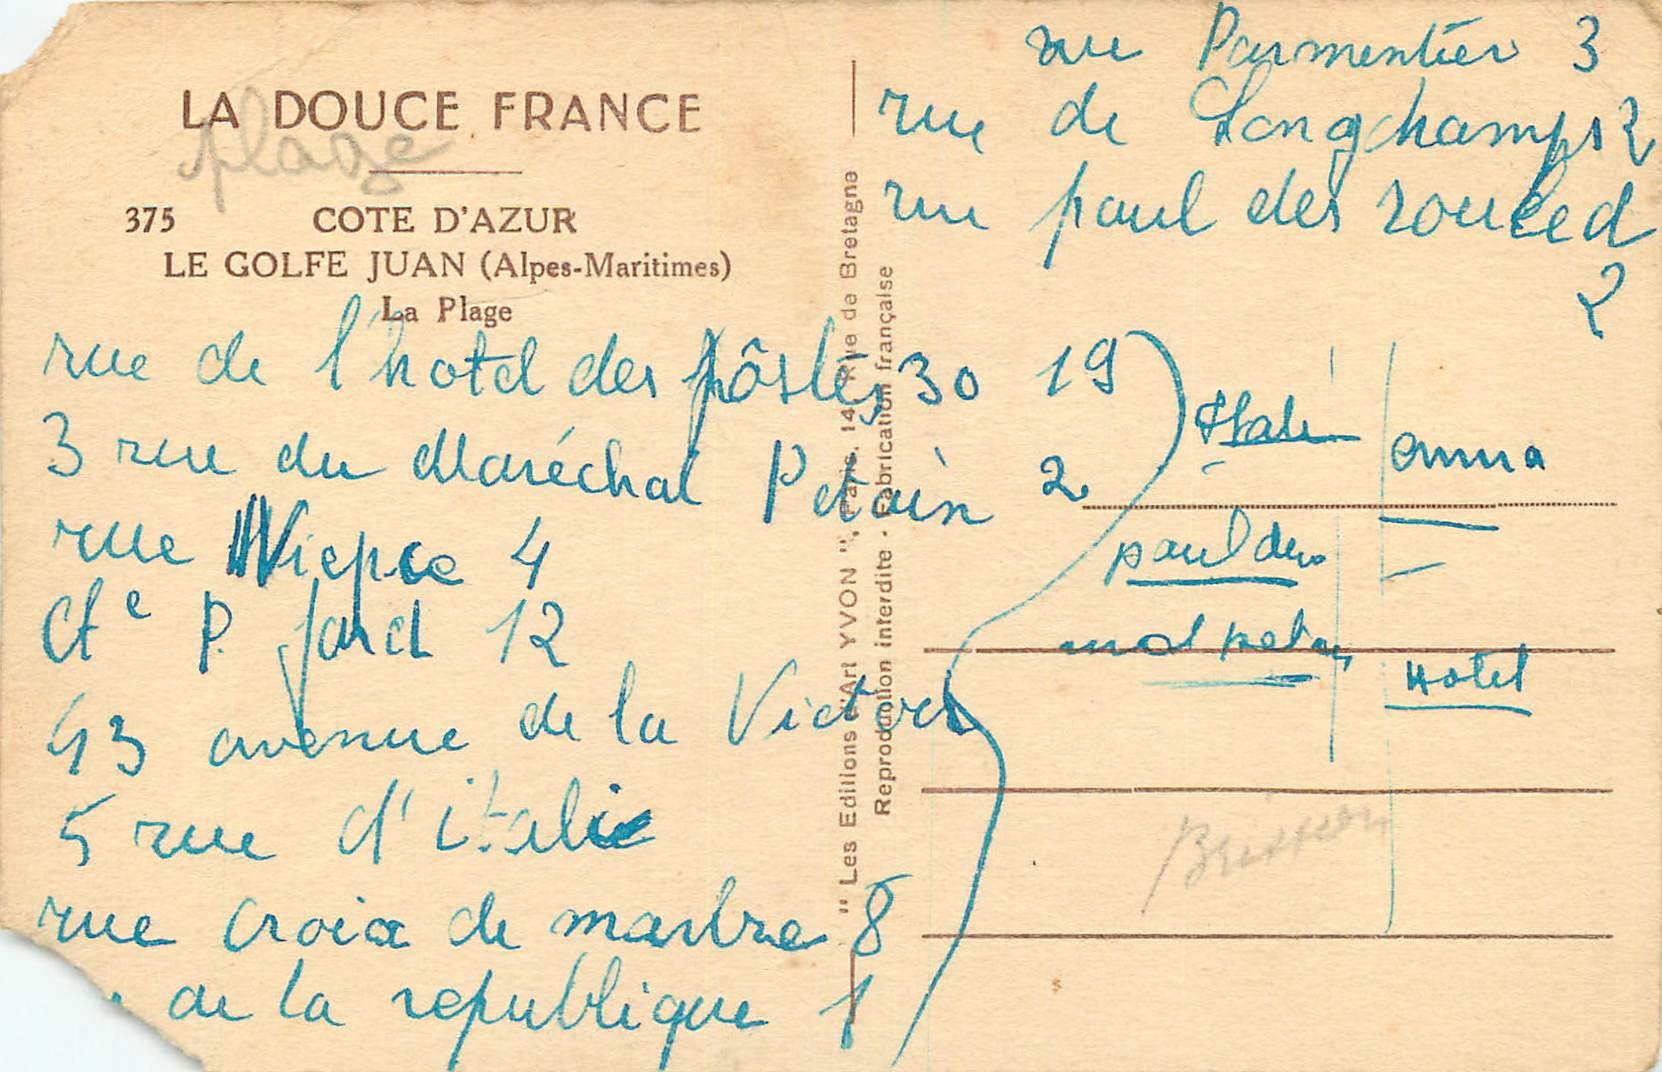 LA DOUCE FRANCE
plage
375 COTE D'AZUR
LE GOLFE JUAN (Alpes-Maritimes)
La Plage
rue de l'hotel des pôstes 30 19
3 rue du Maréchal Petain 2
rue Niepce 4
P. 12
43 avenue de la Victoire
5 rue d'italie
rue croix de marbre 8
de la republique 1
"Les Editions d'Art YVON", Paris, 14, Rue de Bretagne
Reproduction interdite - Fabrication française
rue Parmentier 3
rue de Longchamps 2
rue paul des
2
anna
paul des
Hotel